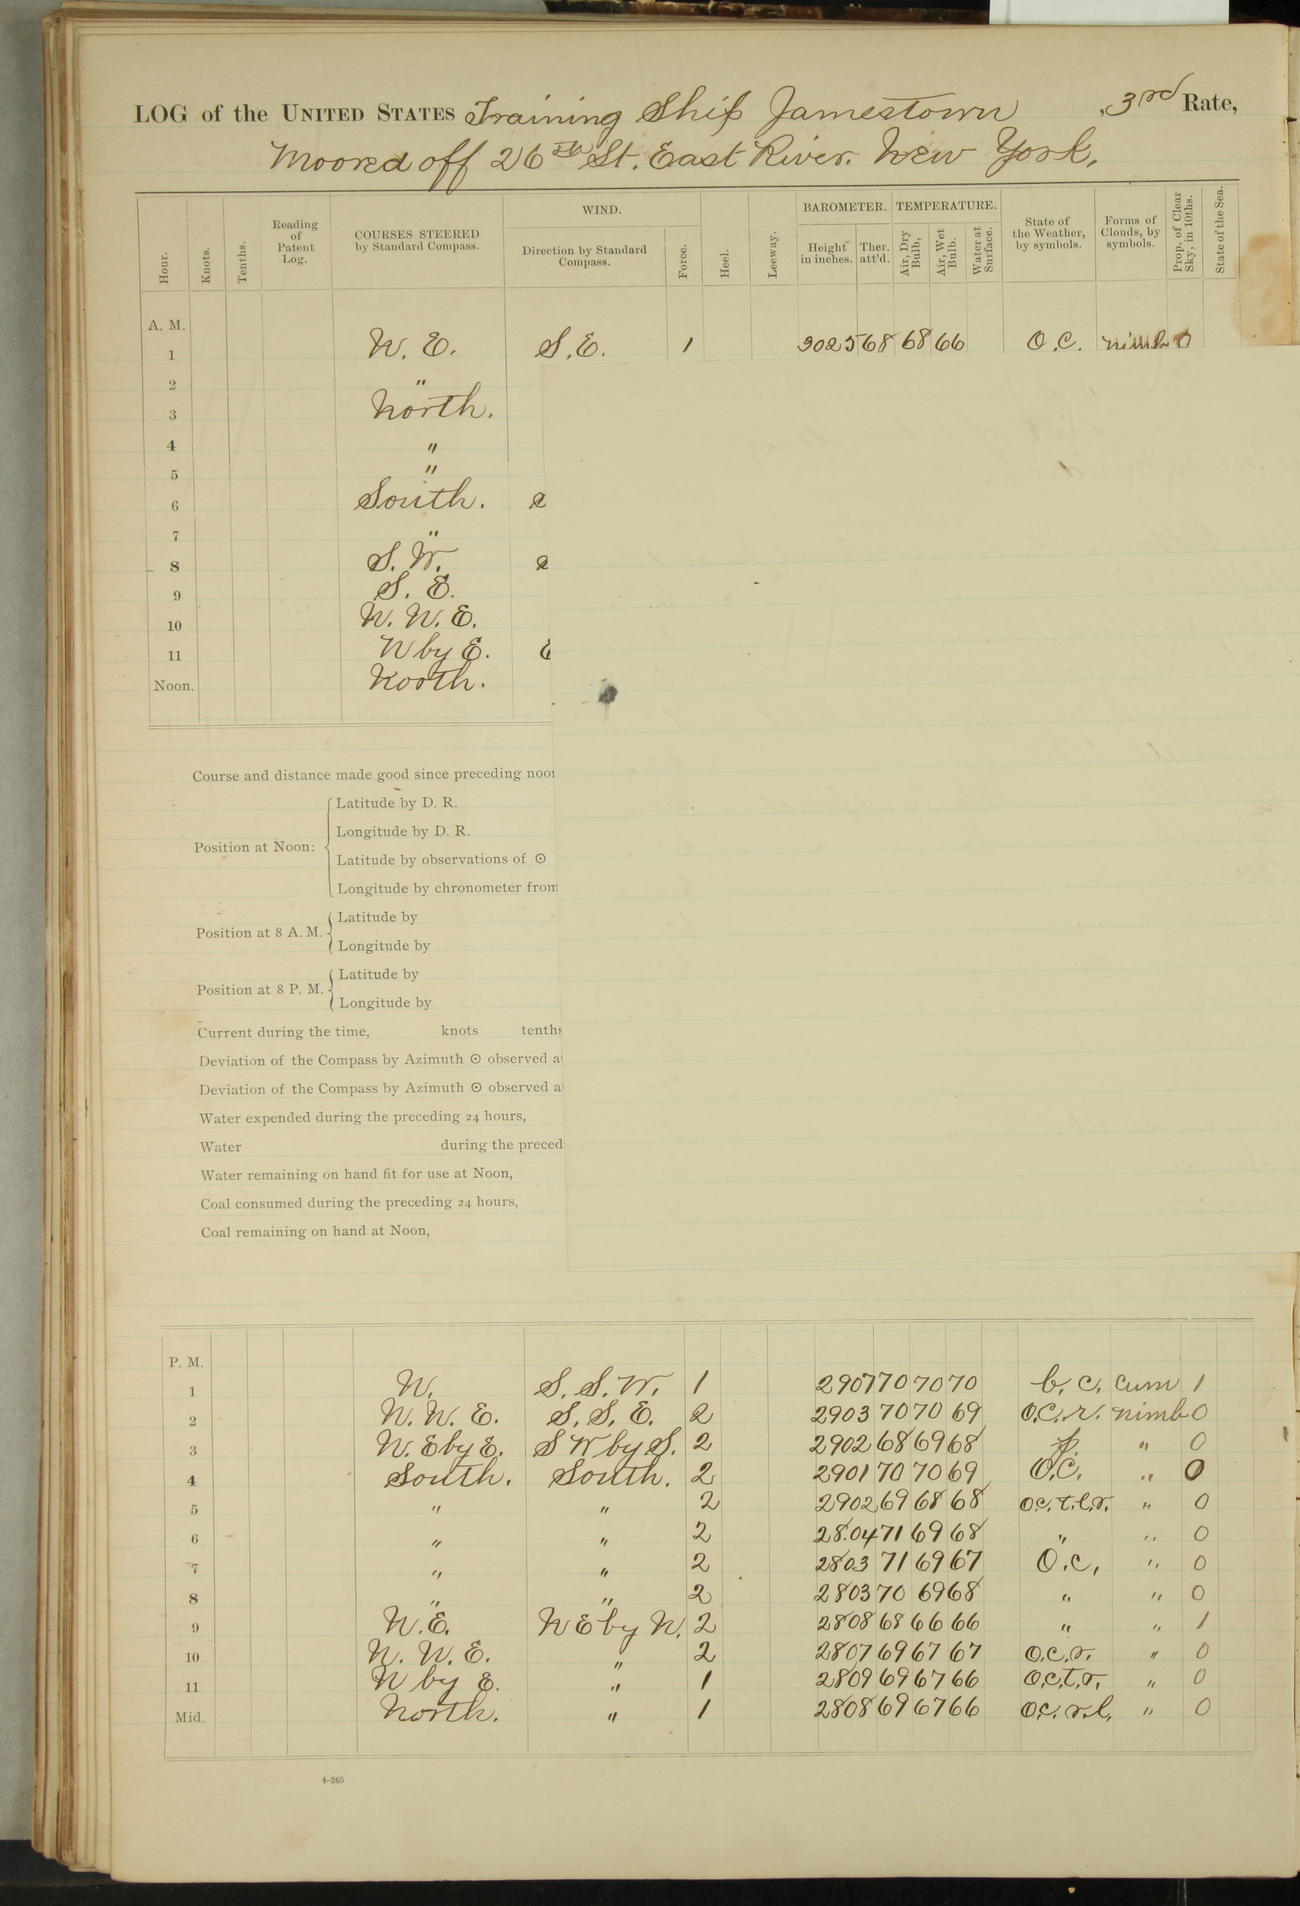 LOG of the UNITED STATES Training Ship Jamestown , 3rd Rate,
Moored off 26th St. East River. New York.
Hour. Knots. Tenths. Reading of Patent Log. COURSES STEERED by Standard Compass. WIND. Direction by Standard Compass. Force. Heel. Leeway. BAROMETER. Height in inches. Ther. att'd. TEMPERATURE. Air, Dry Bulb, Air, Wet Bulb. Water at Surface. State of the Weather, by symbols. Forms of Clouds, by symbols. Prop. of Clear Sky, in 10ths. State of the Sea.
A. M.
1 N. E. S.E. 1 3025 68 68 66 O.C. nimb 0
2 "
3 North.
4 "
5 "
6 South.
7 "
8 S. W.
9 S. E.
10 N. N. E.
11 N by E.
Noon. North.
Course and distance made good since preceding noon
Position at Noon:
Latitude by D. R.
Longitude by D. R.
Latitude by observations of ⊙
Longitude by chronometer from
Position at 8 A. M.
Latitude by
Longitude by
Position at 8 P. M.
Latitude by
Longitude by
Current during the time, knots tenths
Deviation of the Compass by Azimuth ⊙ observed at
Deviation of the Compass by Azimuth ⊙ observed a
Water expended during the preceding 24 hours,
Water during the preced
Water remaining on hand fit for use at Noon,
Coal consumed during the preceding 24 hours,
Coal remaining on hand at Noon,
P. M.
1 N. S. S. W. 1 2907 70 70 70 b. c. cum 1
2 N. N. E. S. S. E. 2 2903 70 70 69 O.C.r. nimb 0
3 N. E by E. S W by S. 2 2902 68 69 68 " 0
4 South. South. 2 2901 70 70 69 O.C. " 0
5 " " 2 2902 69 68 68 o.c.t.l.r. " 0
6 " " 2 28.04 71 69 68 " " 0
7 " " 2 2803 71 69 67 O.c, " 0
8 " " 2 2803 70 69 68 " " 0
9 N.E. N E by N. 2 2808 68 66 66 " " 1
10 N. N. E. " 2 2807 69 67 67 o.c.r. " 0
11 N by E. " 1 2809 69 67 66 o.c.t.r. " 0
Mid. North. " 1 2808 69 67 66 o.c. r.l. " 0
4–265